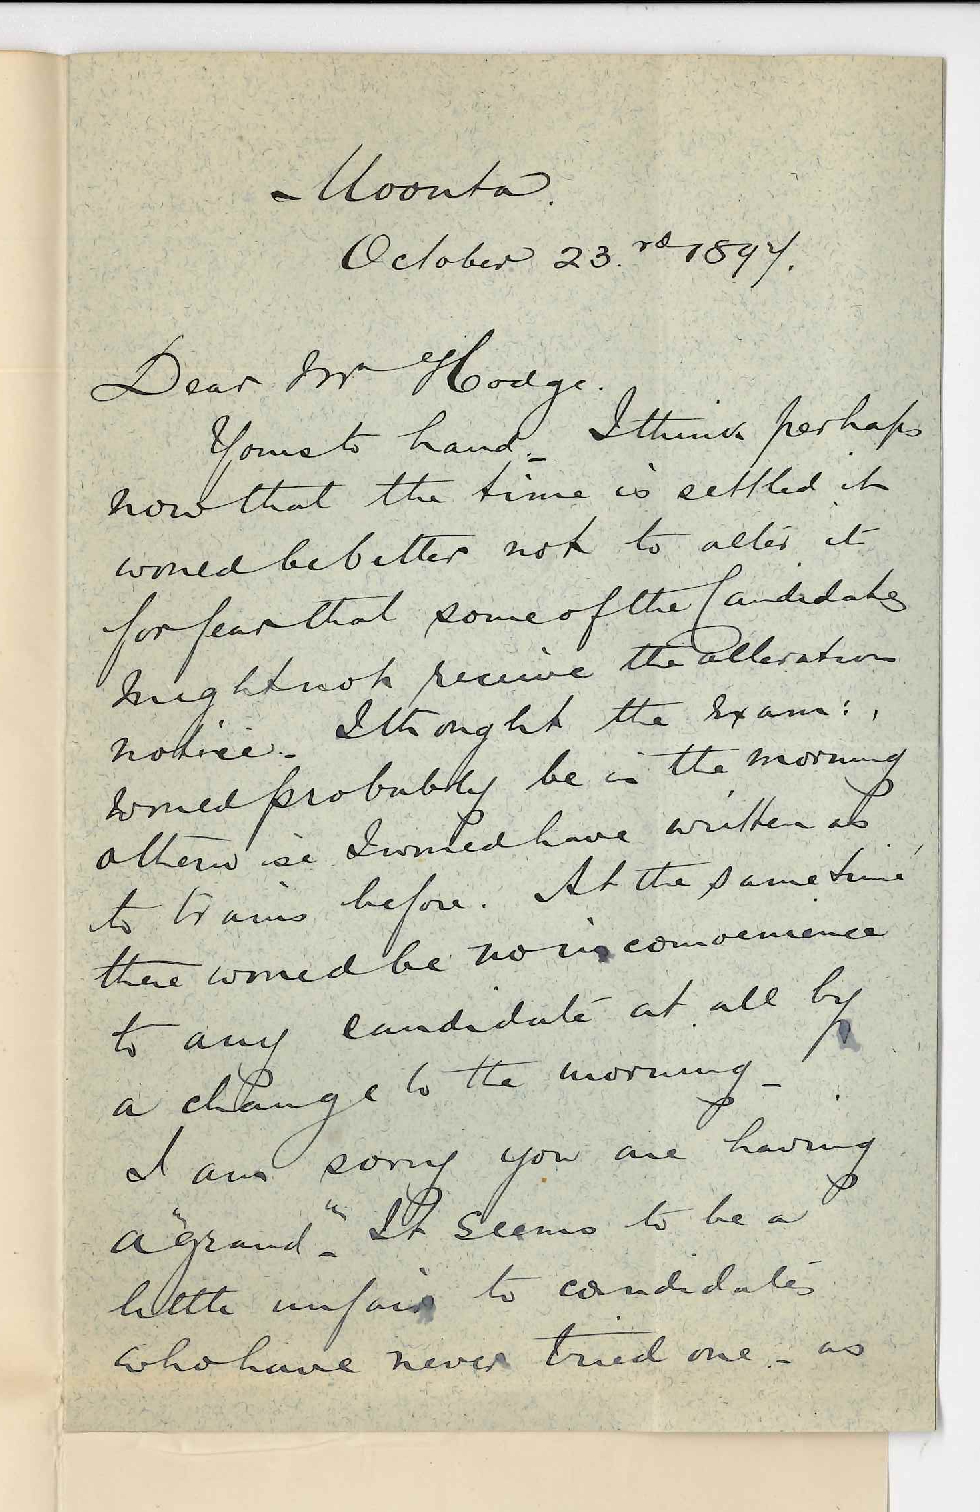 Moonta.
October 23.rd 1897.
Dear Mr Hodge.
Yours to hand_ I think perhaps
now that the time is settled it
would be better not to alter it
for fear that some of the Candidates
might not receive the alteration
notice_ I thought the Exam:,
would probably be in the morning
otherwise I would have written as
to trains before. At the same time
there would be no inconvenience
to any candidate at all by
a change to the morning_
I am sorry you are having
a "grand"_ It seems to be a
little unfair to candidates
who have never tried one_ as